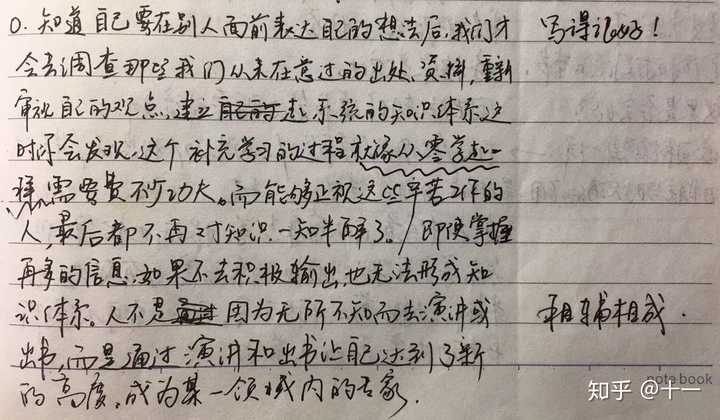 0. 知道自己要在别人面前表达自己的想法后,我们才
写得很好!
会去调查那些我们从未在意过的出处、资料,重新
审视自己的观点,建立起系统的知识体系,这
时你会发现,这个补充学习的过程就像从零学起一
样,需要费不少功夫。而能够正视这些辛苦工作的
人,最后都不再对知识一知半解了。/即便掌握
再多的信息,如果不去积极输出,也无法形成知
识体系。人不是因为无所不知而去演讲或
相辅相成.
出书,而是通过演讲和出书让自己达到了新
的高度,成为某一领域内的专家.
note book
知乎 @十一